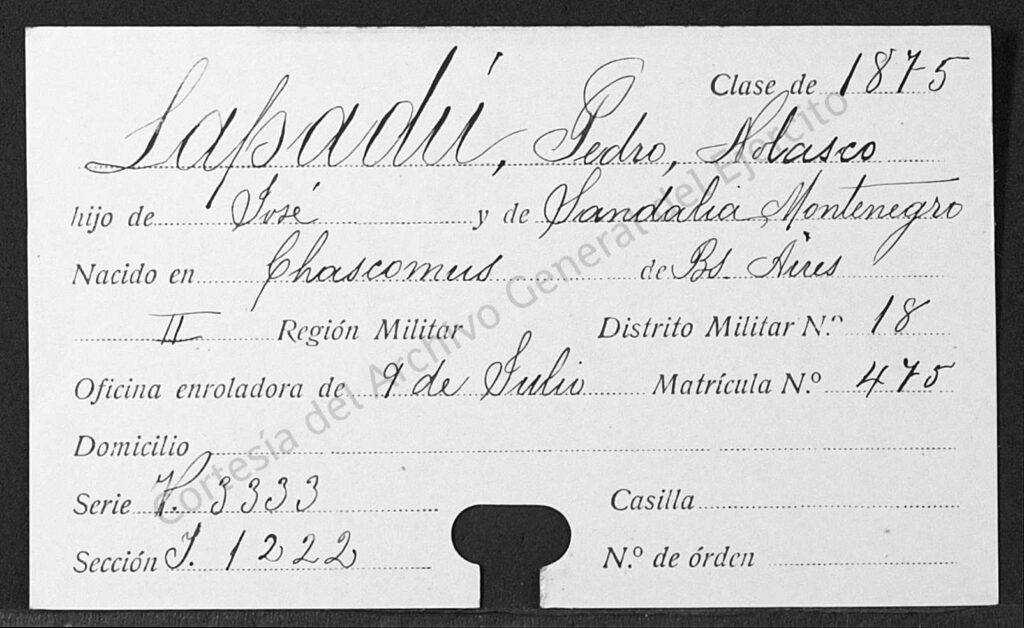 Clase de 1875
Lapadú, Pedro, Nolasco
hijo de José y de Sandalia Montenegro
Nacido en Chascomus de Bs. Aires
II Región Militar Distrito Militar N.º 18
Oficina enroladora de 9 de Julio Matrícula N.º 475
Domicilio
Serie V. 3333 Casilla
Sección J. 1222 N.º de órden
Cortesía del Archivo General del Ejército